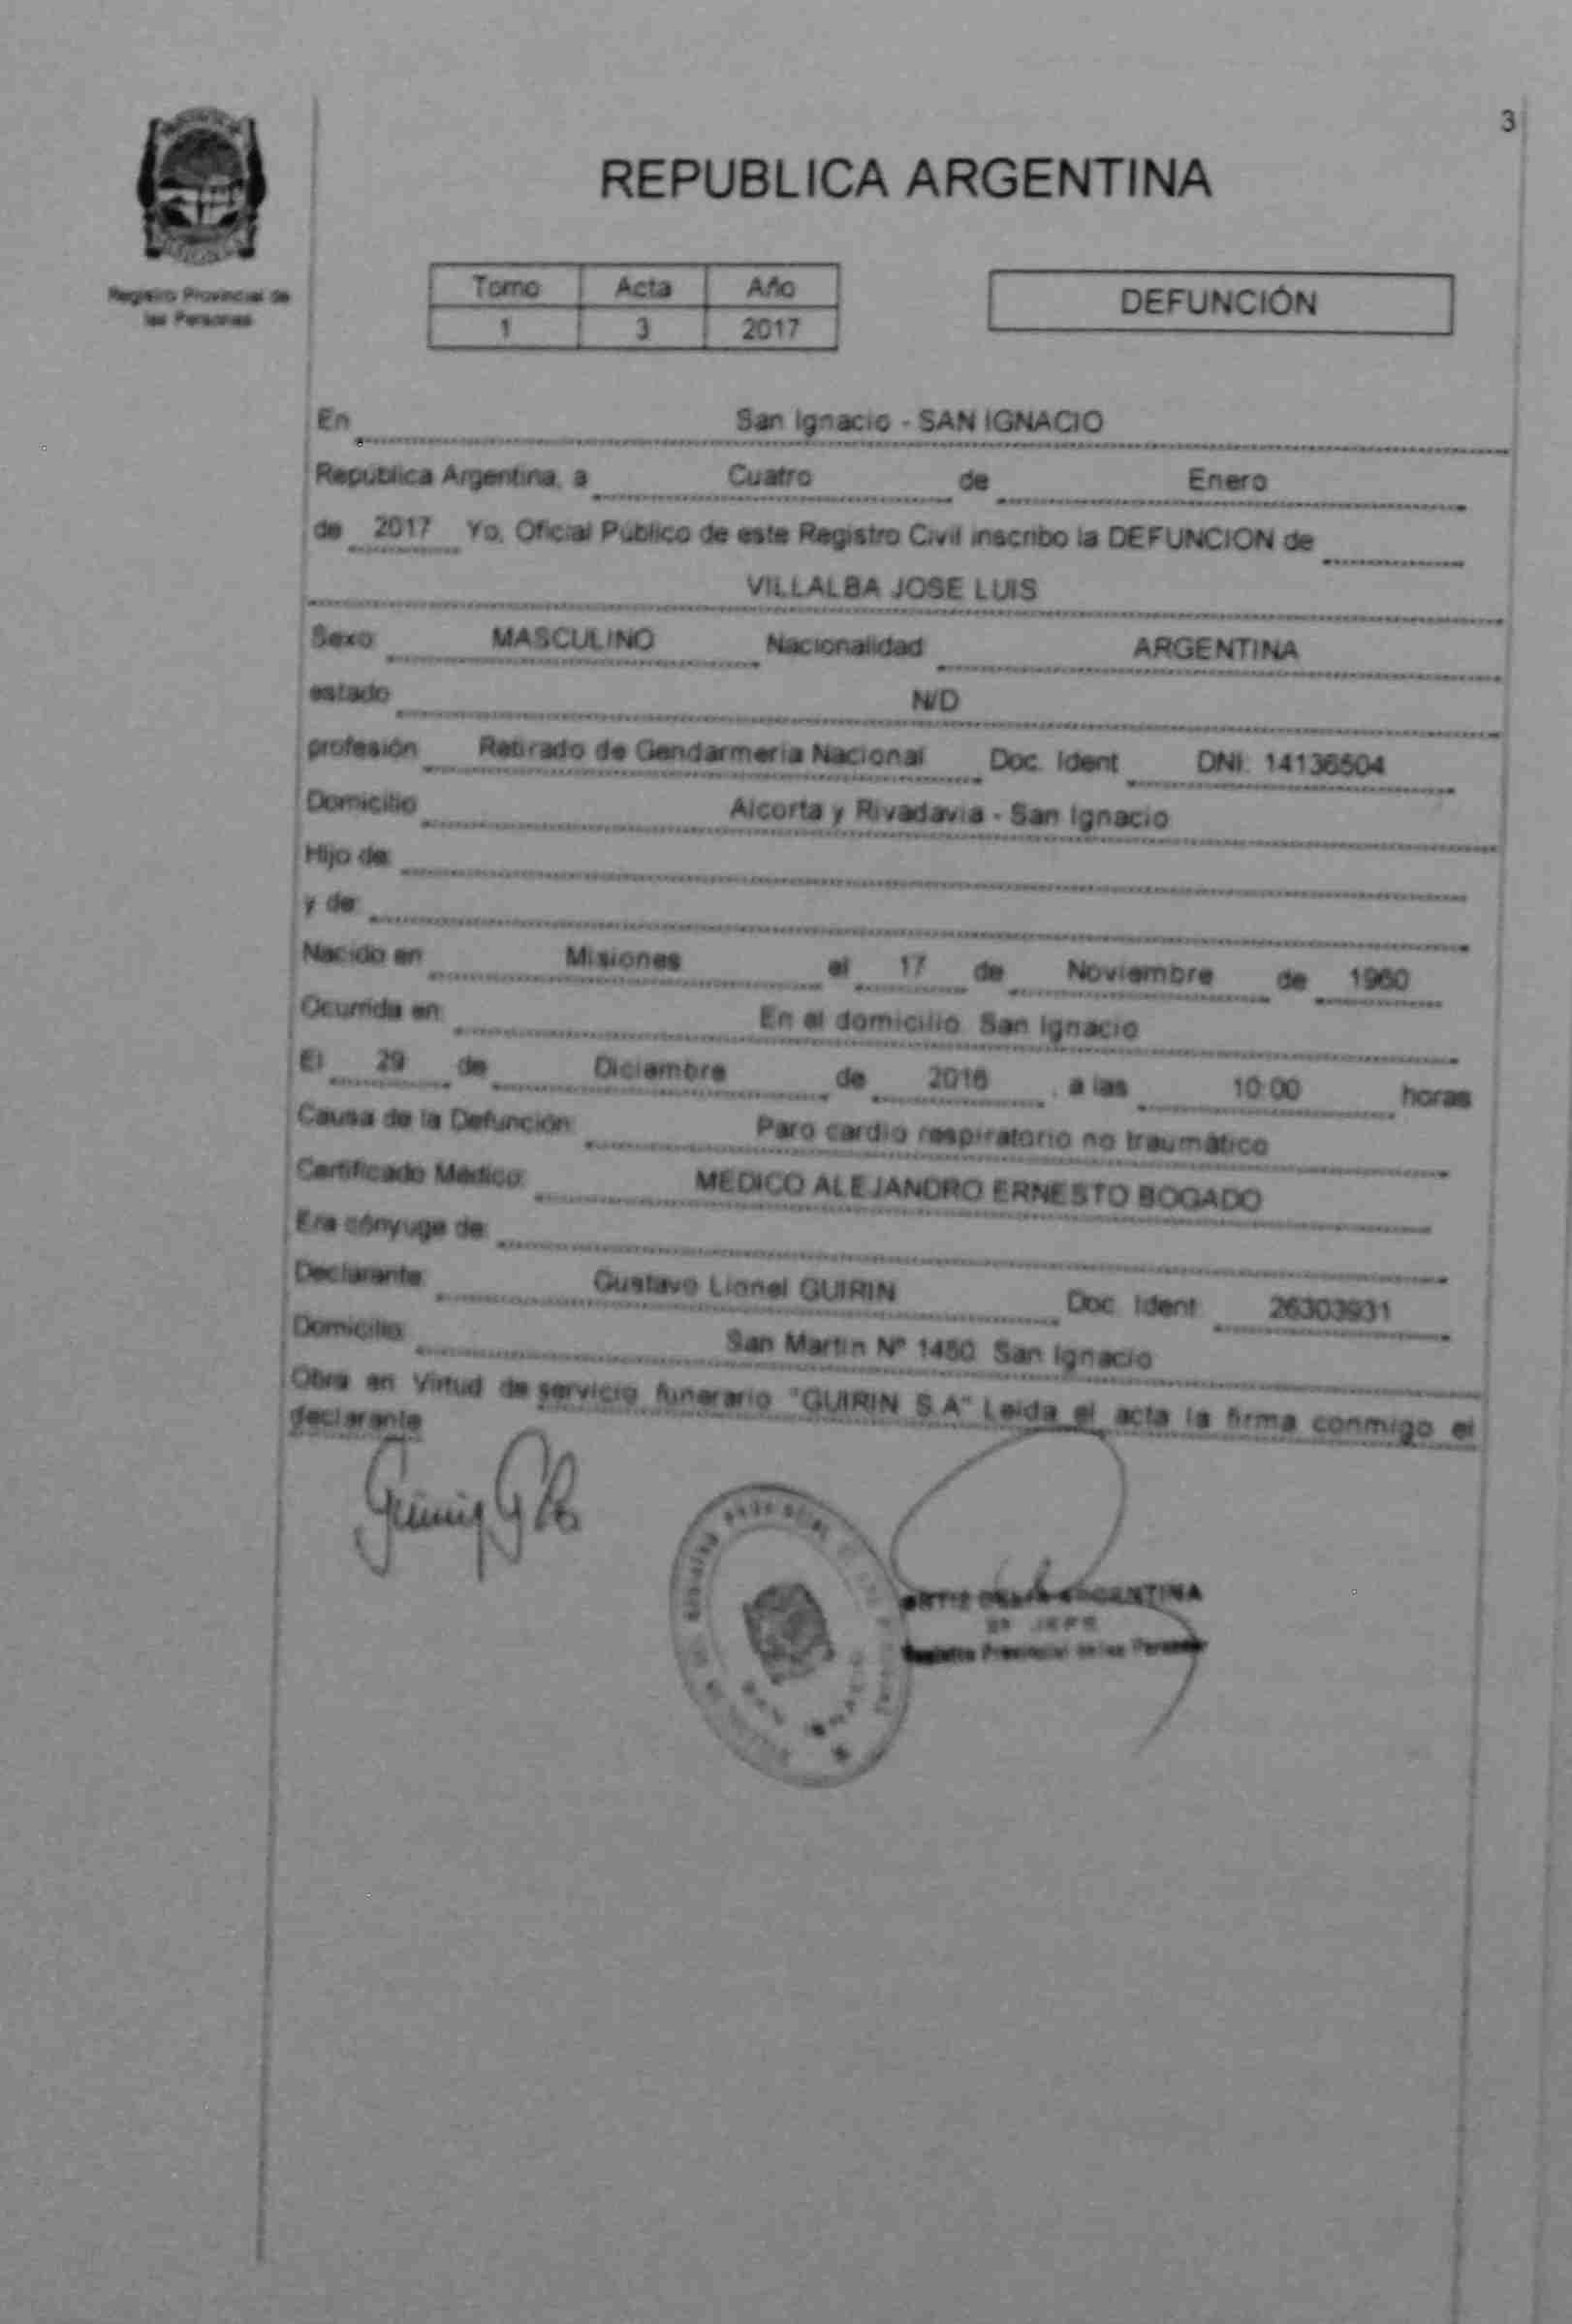 3
REPUBLICA ARGENTINA
Registro Provincial de
las Personas
Tomo Acta Año
1 3 2017
DEFUNCIÓN
En San Ignacio - SAN IGNACIO
República Argentina, a Cuatro de Enero
de 2017 Yo, Oficial Público de este Registro Civil inscribo la DEFUNCION de
VILLALBA JOSE LUIS
Sexo MASCULINO Nacionalidad ARGENTINA
estado N/D
profesión Retirado de Gendarmería Nacional Doc. Ident DNI: 14136504
Domicilio Alcorta y Rivadavia - San Ignacio
Hijo de:
y de:
Nacido en Misiones el 17 de Noviembre de 1960
Ocurrida en: En el domicilio San Ignacio
El 29 de Diciembre de 2016 , a las 10:00 horas
Causa de la Defunción: Paro cardio respiratorio no traumático
Certificado Médico: MEDICO ALEJANDRO ERNESTO BOGADO
Era cónyuge de:
Declarante: Gustavo Lionel GUIRIN Doc. Ident 26303931
Domicilio: San Martín Nº 1450 San Ignacio
Obra en Virtud de servicio funerario "GUIRIN S.A" Leida el acta la firma conmigo el
declarante
ARGENTINA
2º JEFE
Registro Provincial de las Personas